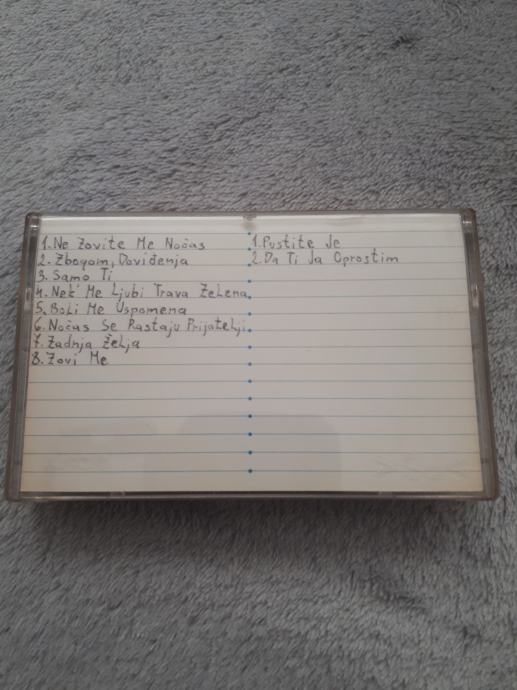 1. Ne Zovite Me Noćas
2. Zbogom, Doviđenja
3. Samo Ti
4. Nek' Me Ljubi Trava Zelena
5. Boli Me Uspomena
6. Noćas Se Rastaju Prijatelji
7. Zadnja Želja
8. Zovi Me
1. Pustite Je
2. Da Ti Ja Oprostim